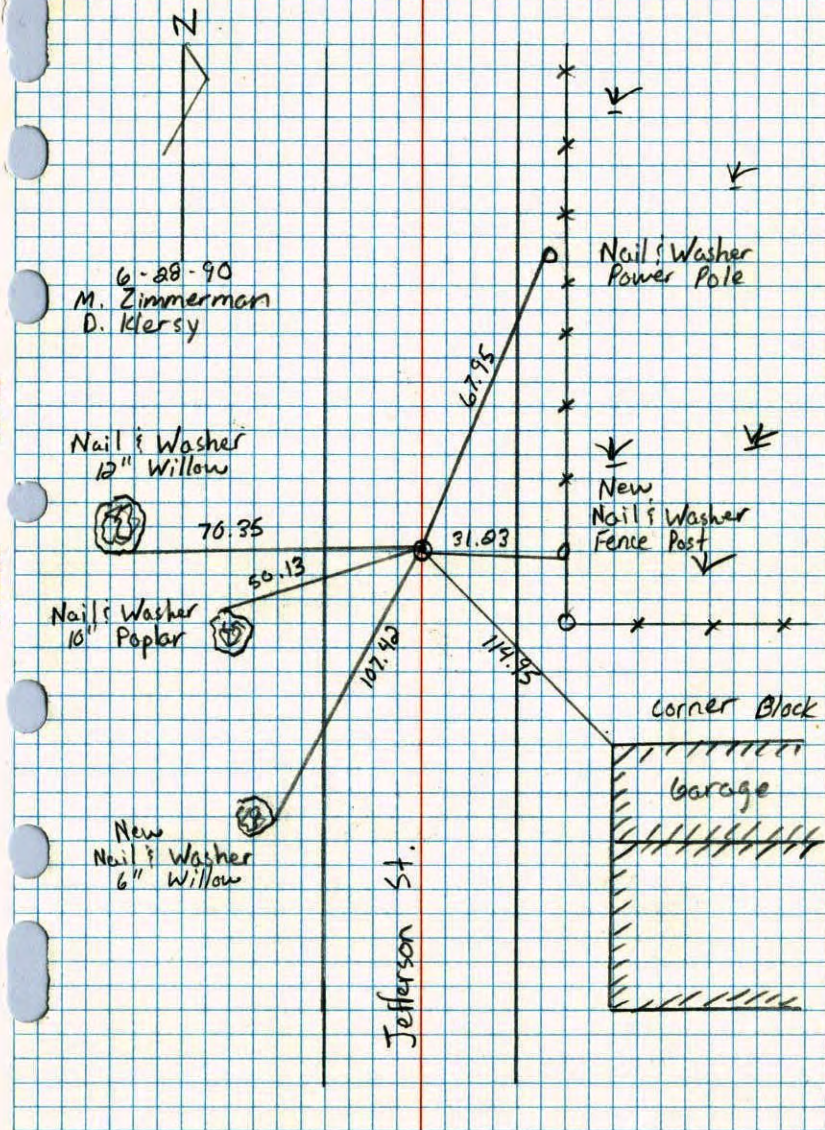 N
6-28-90
M. Zimmerman
D. Klersy
Nail & Washer
Power Pole
67.95
Nail & Washer
12" Willow
70.35
New
Nail & Washer
Fence Post
31.23
50.13
Nail & Washer
10" Poplar
107.42
114.95
Corner Block
Garage
New
Nail & Washer
6" Willow
Jefferson St.